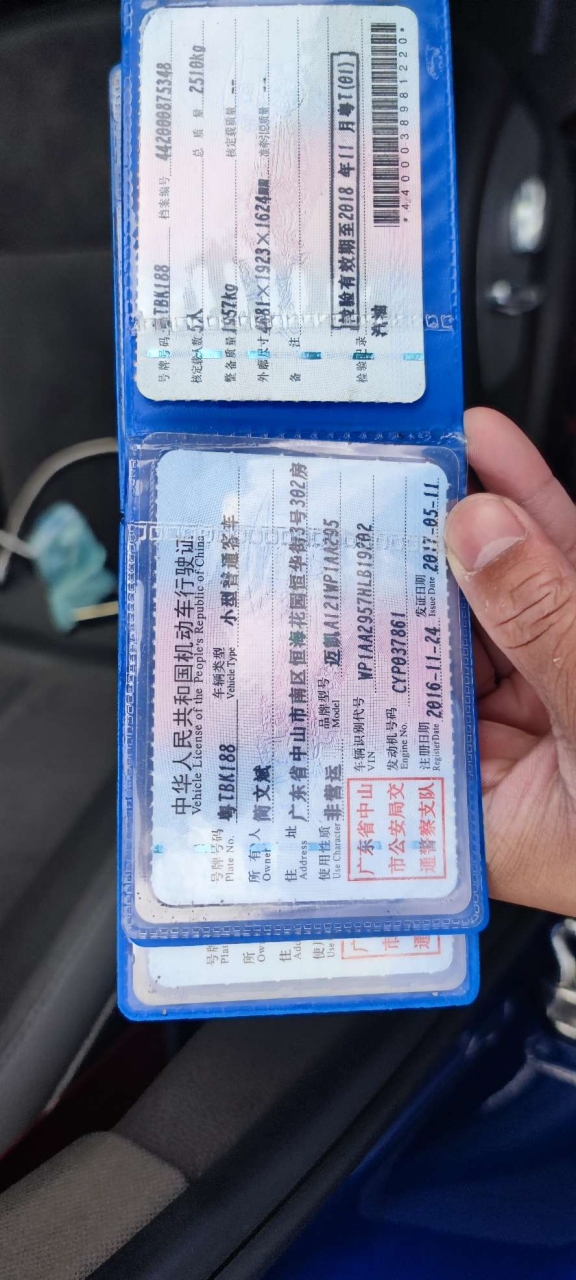 中华人民共和国机动车行驶证
Vehicle License of the People's Republic of China
号牌号码 粤TBK188 车辆类型 小型普通客车
Plate No. Vehicle Type
所有人 简文斌
Owner
住址 广东省中山市南区恒海花园恒华街3号302房
Address
使用性质 非营运 品牌型号 迈凯A121WP1AA295
Use Character Model
广东省中山
市公安局交
通警察支队
车辆识别代号 WP1AA2957HLB19702
VIN
发动机号码 CYP037861
Engine No.
注册日期 2016-11-24 发证日期 2017-05-11
Register Date Issue Date
号牌号码 粤TBK188 档案编号 442000875348
核定载人数 5人 总质量 2510kg
整备质量 1957kg 核定载质量 --
外廓尺寸 4681×1923×1624mm 准牵引总质量 --
备注
检验记录 检验有效期至2018年11月粤T(01)
汽油
*4400038981220*
号牌
Plat
所
Ow
住
Add
使用
Use
广
市
通